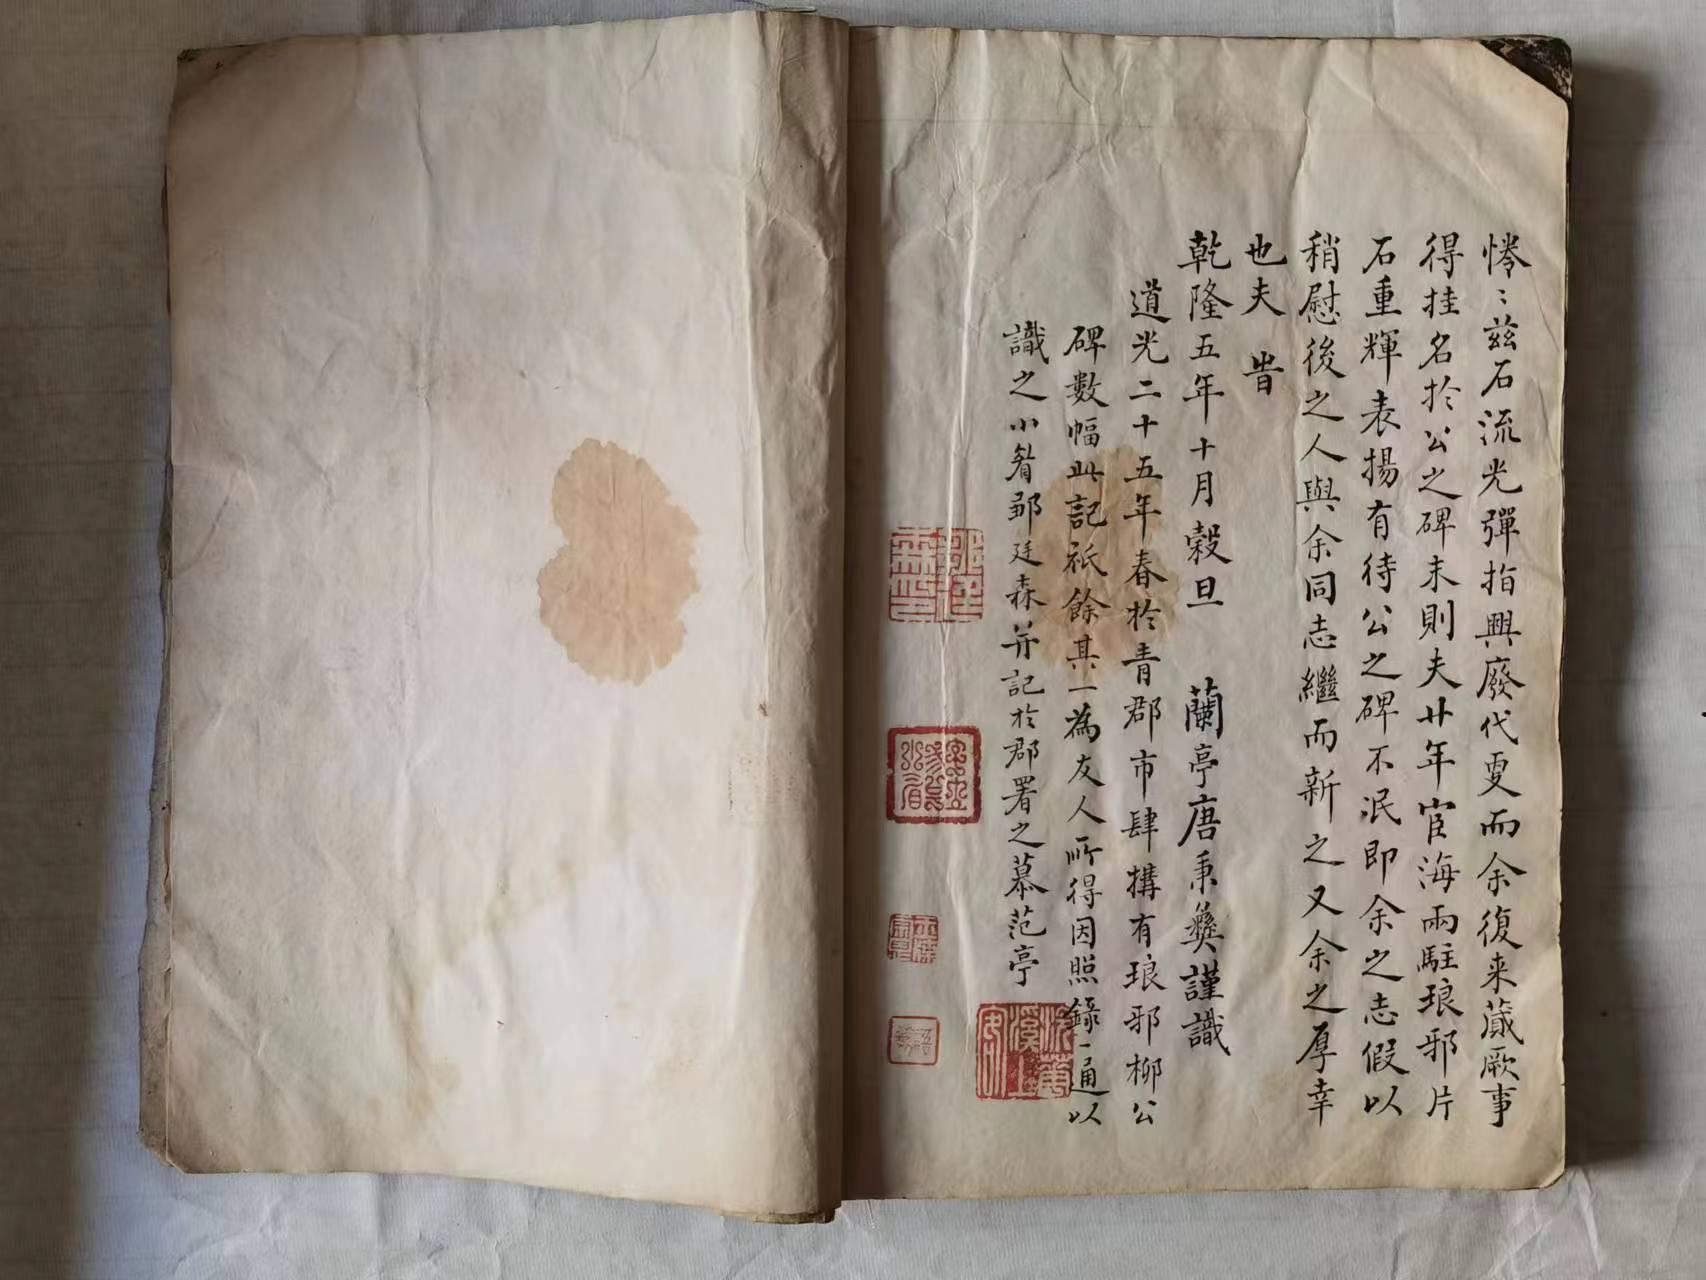 惓〻茲石流光彈指興廢代更而余復来蕆厥事
得挂名於公之碑末則夫廿年宦海兩駐琅邪片
石重輝表揚有待公之碑不泯即余之志假以
稍慰後之人與余同志繼而新之又余之厚幸
也夫 旹
乾隆五年十月穀旦 蘭亭唐秉彝謹識
道光二十五年春於青郡市肆搆有琅邪柳公
碑數幅此記祇餘其一為友人所得因照錄一通以
識之小眉鄒廷森并記於郡署之慕范亭